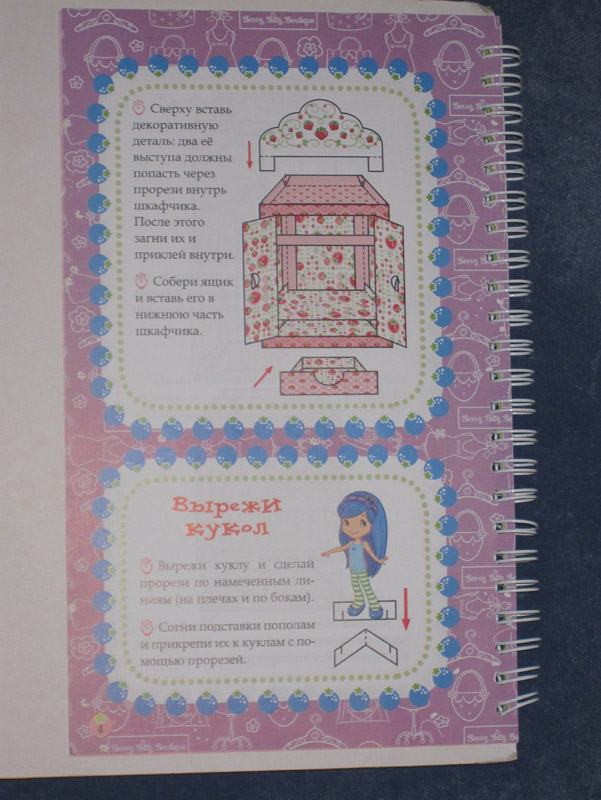 Berry Bitty Boutique
Berry Bitty
Сверху вставь
декоративную
деталь: два её
выступа должны
попасть через
прорези внутрь
шкафчика.
После этого
загни их и
приклей внутри.
Собери ящик
и вставь его в
нижнюю часть
шкафчика.
Berry Bitty
Berry Bitty
Вырежи
кукол
Вырежи куклу и сделай
прорези по намеченным ли-
ниям (на плечах и по бокам).
Согни подставки пополам
и прикрепи их к куклам с по-
мощью прорезей.
Berry Bitty
Berry Bitty
4
Berry Bitty Boutique